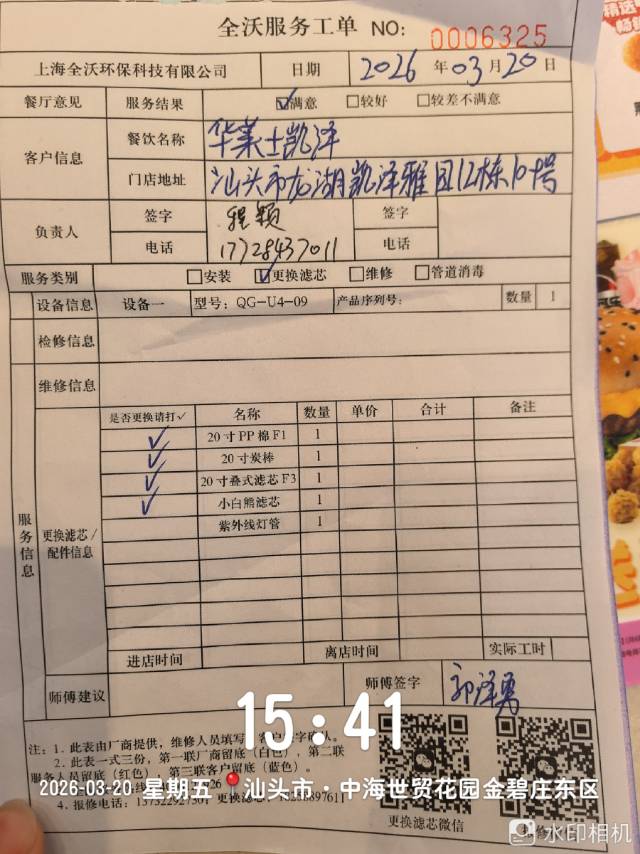 全沃服务工单 NO: 0006325
上海全沃环保科技有限公司 日期 2026 年 03 月 20 日
餐厅意见 服务结果 ☑满意 □较好 □较差不满意
客户信息 餐饮名称 华莱士凯泽
门店地址 汕头市龙湖凯泽雅园12栋10号
负责人 签字 程颖 签字
电话 17728437011 电话
服务类别 □安装 ☑更换滤芯 □维修 □管道消毒
设备信息 设备一 型号：QG-U4-09 产品序列号： 数量 1
检修信息
维修信息
服务信息
更换滤芯/配件信息
是否更换请打✓ 名称 数量 单价 合计 备注
✓ 20寸PP棉F1 1
✓ 20寸炭棒 1
✓ 20寸叠式滤芯F3 1
✓ 小白熊滤芯 1
紫外线灯管 1
进店时间 离店时间 实际工时
师傅建议 师傅签字
15:41
注：1. 此表由厂商提供，维修人员填写，客户签字确认。
2. 此表一式三份，第一联厂商留底（白色），第二联
服务人员留底（红色），第三联客户留底（蓝色）。
2026-03-20 星期五 汕头市·中海世贸花园金碧庄东区
4. 报修电话：13732292730，更换滤芯
更换滤芯微信
水印相机